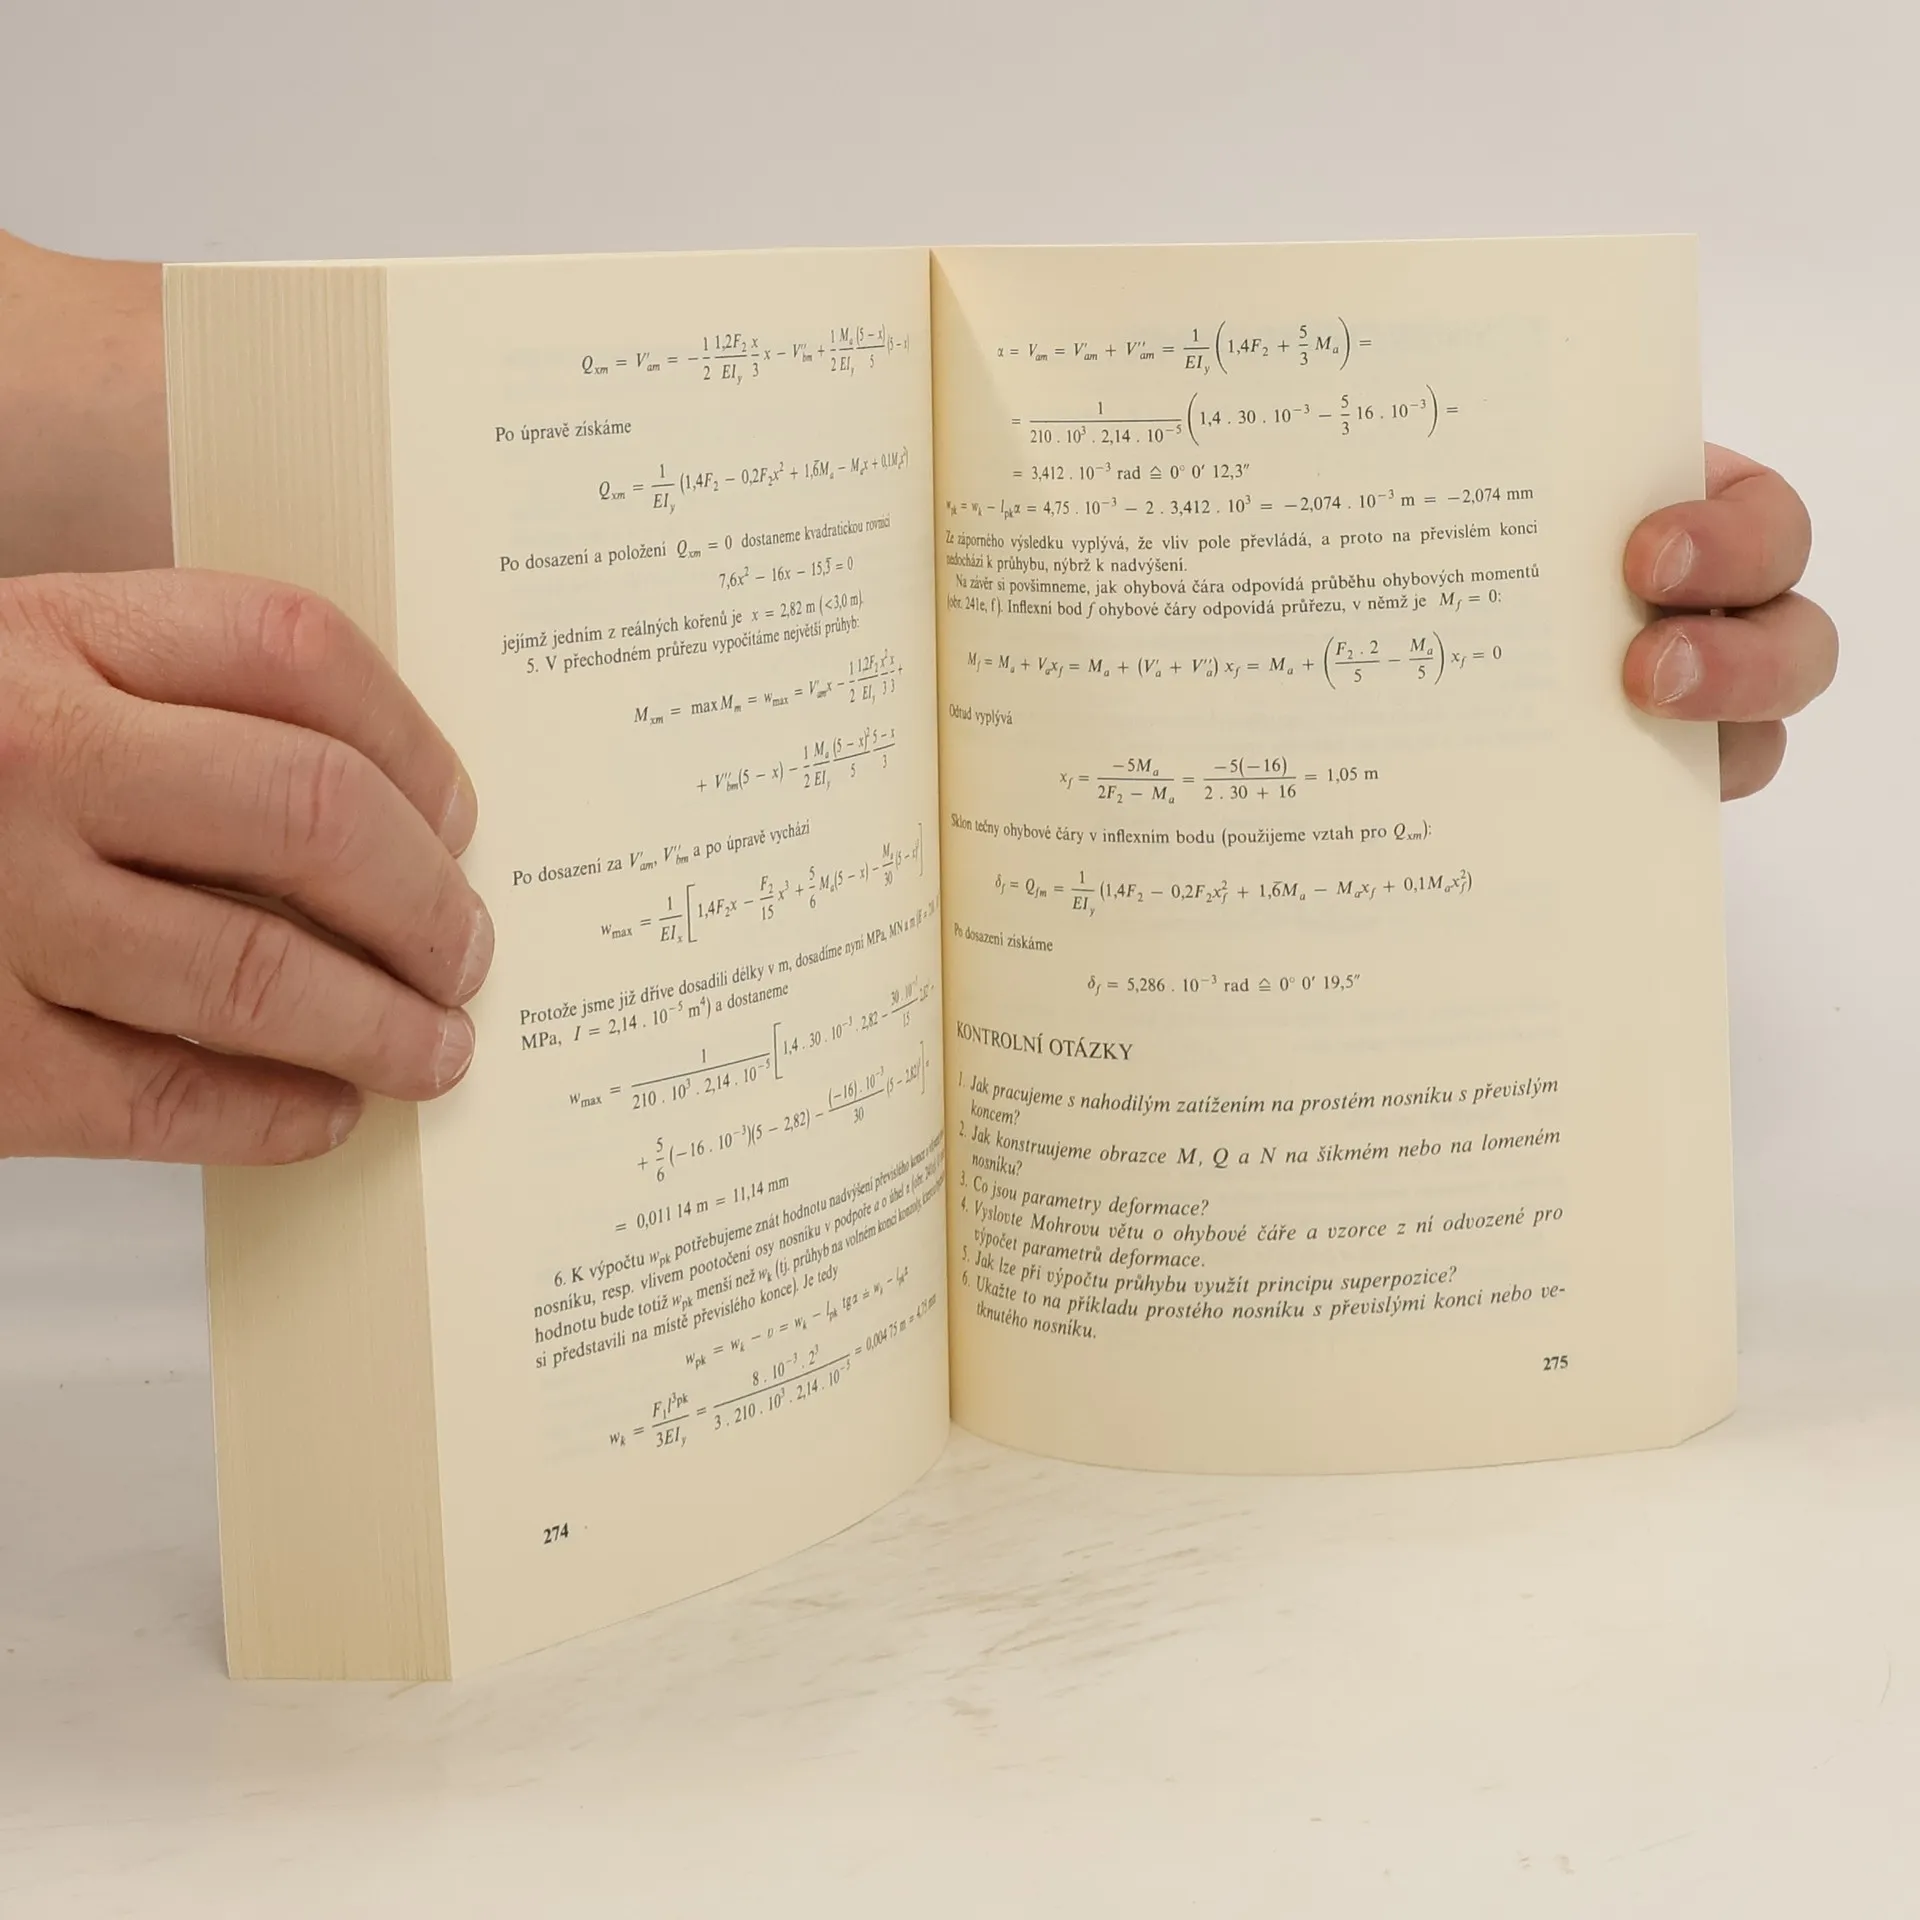 Q_xm = V'_am = − 1/2 1,2F₂/EI_y x/3 x − V''_bm + 1/2 M_a/EI_y (5 − x)/5 (5 − x)
Po úpravě získáme
Q_xm = 1/EI_y (1,4F₂ − 0,2F₂x² + 1,6̄M_a − M_a x + 0,1M_a x²)
Po dosazení a položení Q_xm = 0 dostaneme kvadratickou rovnici
7,6x² − 16x − 15,3̄ = 0
jejímž jedním z reálných kořenů je x = 2,82 m (<3,0 m).
5. V přechodném průřezu vypočítáme největší průhyb:
M_xm = max M_m = w_max = V'_am x − 1/2 1,2F₂/EI_y x²/3 x/3 +
+ V''_bm(5 − x) − 1/2 M_a/EI_y (5 − x)²/5 5 − x/3
Po dosazení za V'_am, V''_bm a po úpravě vychází
w_max = 1/EI_x [1,4F₂x − F₂/15 x³ + 5/6 M_a(5 − x) − M_a/30 (5 − x)³]
Protože jsme již dříve dosadili délky v m, dosadíme nyní MPa, MN a m (E =
MPa, I = 2,14 . 10⁻⁵ m⁴) a dostaneme
w_max = 1/210 . 10³ . 2,14 . 10⁻⁵ [1,4 . 30 . 10⁻³ . 2,82 − 30 . 10⁻³/15 2,82³ +
+ 5/6 (−16 . 10⁻³)(5 − 2,82) − (−16) . 10⁻³/30 (5 − 2,82)³] =
= 0,011 14 m = 11,14 mm
6. K výpočtu w_pk potřebujeme znát hodnotu nadvýšení převislého konce
nosníku, resp. vlivem pootočení osy nosníku v podpoře a o úhel α (obr.
hodnotu bude totiž w_pk menší než w_k (tj. průhyb na volném konci konzoly,
si představili na místě převislého konce). Je tedy
w_pk = w_k − v = w_k − l_pk tg α ≐ w_k − l_pk α
w_k = F₁l³pk/3EI_y = 8 . 10⁻³ . 2³/3 . 210 . 10³ . 2,14 . 10⁻⁵ = 0,004 75 m = 4,75 mm
274
α = V_am = V'_am + V''_am = 1/EI_y (1,4F₂ + 5/3 M_a) =
= 1/210 . 10³ . 2,14 . 10⁻⁵ (1,4 . 30 . 10⁻³ − 5/3 16 . 10⁻³) =
= 3,412 . 10⁻³ rad ≙ 0° 0′ 12,3″
w_pk = w_k − l_pk α = 4,75 . 10⁻³ − 2 . 3,412 . 10³ = −2,074 . 10⁻³ m = −2,074 mm
Ze záporného výsledku vyplývá, že vliv pole převládá, a proto na převislém konci
nedochází k průhybu, nýbrž k nadvýšení.
Na závěr si povšimneme, jak ohybová čára odpovídá průběhu ohybových momentů
(obr. 241e, f). Inflexní bod f ohybové čáry odpovídá průřezu, v němž je M_f = 0:
M_f = M_a + V_a x_f = M_a + (V'_a + V''_a) x_f = M_a + (F₂ . 2/5 − M_a/5) x_f = 0
Odtud vyplývá
x_f = −5M_a/2F₂ − M_a = −5(−16)/2 . 30 + 16 = 1,05 m
Sklon tečny ohybové čáry v inflexním bodu (použijeme vztah pro Q_xm):
δ_f = Q_fm = 1/EI_y (1,4F₂ − 0,2F₂x_f² + 1,6̄M_a − M_a x_f + 0,1M_a x_f²)
Po dosazení získáme
δ_f = 5,286 . 10⁻³ rad ≙ 0° 0′ 19,5″
KONTROLNÍ OTÁZKY
1. Jak pracujeme s nahodilým zatížením na prostém nosníku s převislým
koncem?
2. Jak konstruujeme obrazce M, Q a N na šikmém nebo na lomeném
nosníku?
3. Co jsou parametry deformace?
4. Vyslovte Mohrovu větu o ohybové čáře a vzorce z ní odvozené pro
výpočet parametrů deformace.
5. Jak lze při výpočtu průhybu využít principu superpozice?
6. Ukažte to na příkladu prostého nosníku s převislými konci nebo ve-
tknutého nosníku.
275